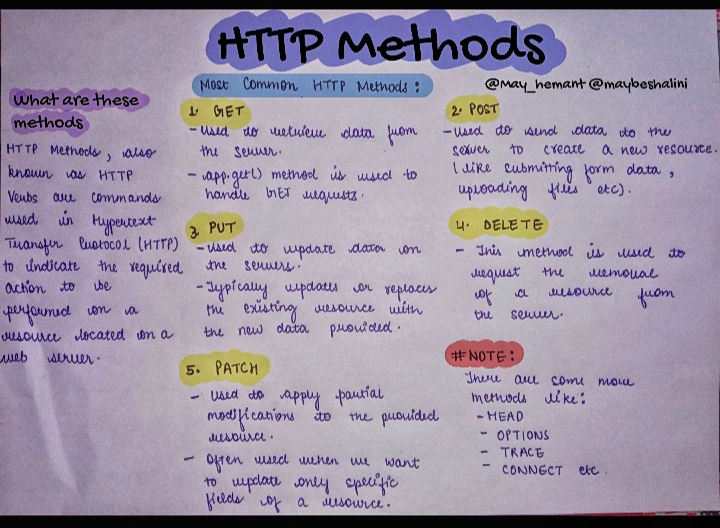 HTTP Methods
Most Common HTTP Methods:
@May_hemant @maybeshalini
What are these
methods
HTTP Methods, also
known as HTTP
Verbs are commands
used in Hypertext
Transfer Protocol (HTTP)
to indicate the required
action to be
performed on a
resource located on a
web server.
1. GET
- Used to retrieve data from
the server.
- .app.get() method is used to
handle GET requests.
2. POST
- Used to send data to the
server to create a new resource.
(like submitting form data,
uploading files etc).
3. PUT
- Used to update data on
the servers.
- Typically updates or replaces
the existing resource with
the new data provided.
4. DELETE
- This method is used to
request the removal
of a resource from
the server.
5. PATCH
- Used to apply partial
modifications to the provided
resource.
- Often used when we want
to update only specific
fields of a resource.
#NOTE:
There are some more
methods like:
- HEAD
- OPTIONS
- TRACE
- CONNECT etc.